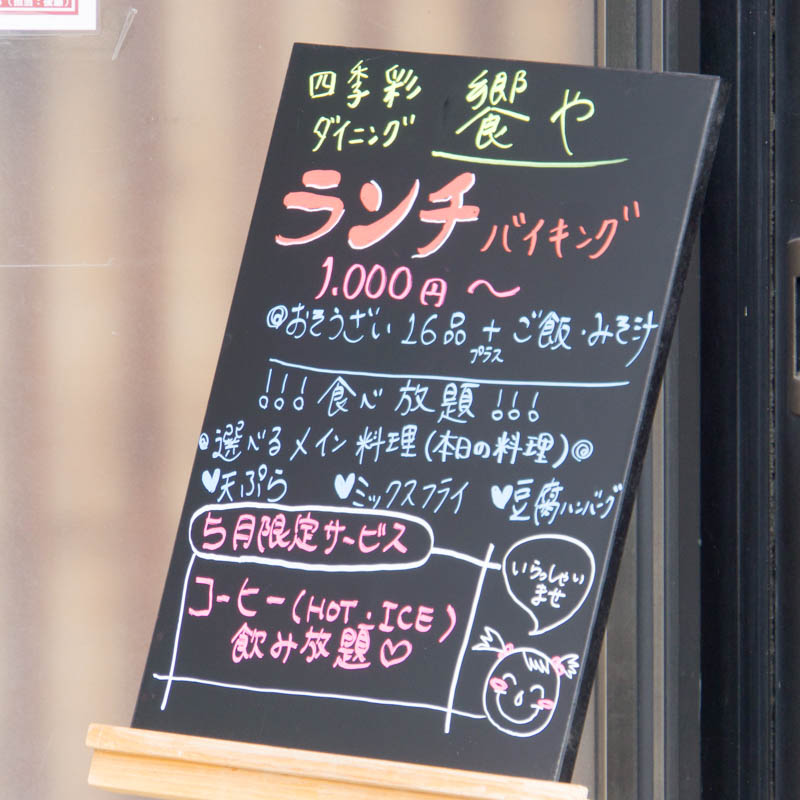 四季彩
ダイニング 饗や
ランチ バイキング
1.000円〜
◎おそうざい 16品 + プラス ご飯・みそ汁
!!! 食べ放題 !!!
◎選べるメイン料理(本日の料理)◎
♥天ぷら ♥ミックスフライ ♥豆腐ハンバーグ
5月限定サービス
コーヒー(HOT・ICE)
飲み放題♡
いらっしゃい
ませ